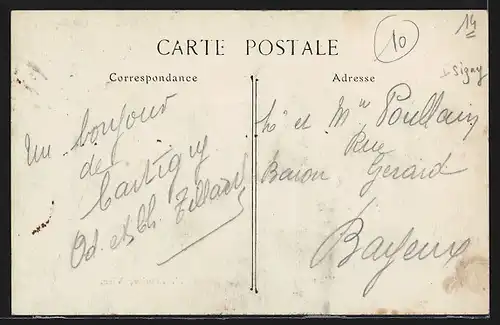 14
10
CARTE POSTALE
Correspondance
Adresse
Isigny
Un bonjour
de
Cartigny
Od. et Ch. Tillard
Mr et Mme Poullain
Rue
Baron Gerard
Bayeux